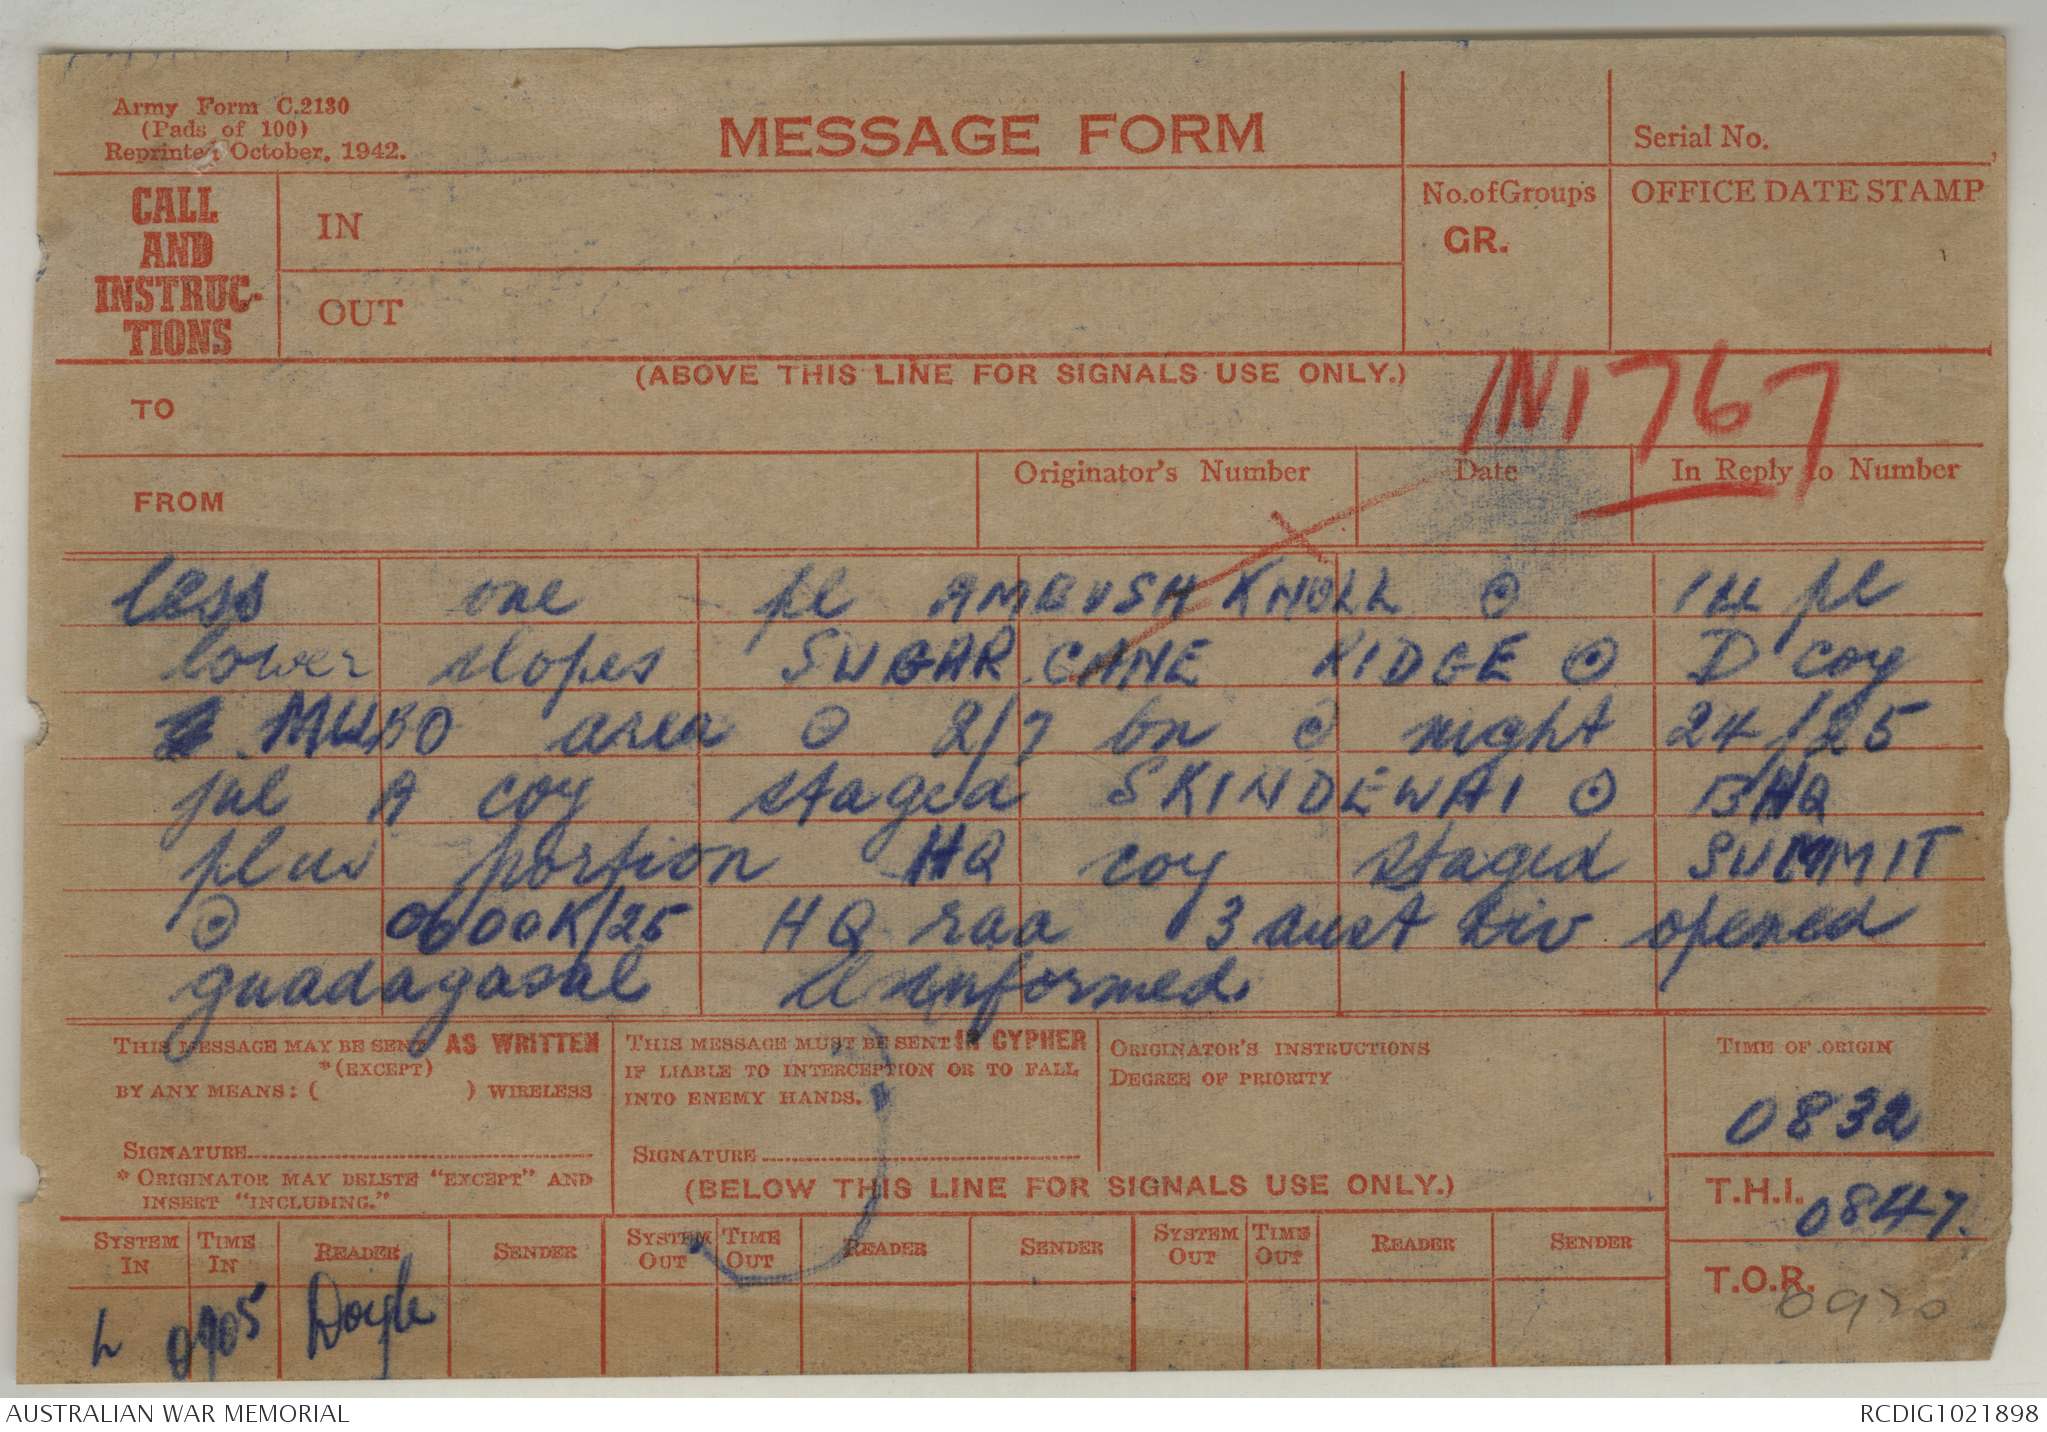 Army Form C.2130
(Pads of 100)
Reprinted October, 1942.
MESSAGE FORM
Serial No.
CALL
AND
INSTRUC-
TIONS
IN
OUT
No. of Groups
GR.
OFFICE DATE STAMP
(ABOVE THIS LINE FOR SIGNALS USE ONLY.)
IN1767
TO
FROM
Originator's Number
Date
In Reply to Number
less one pl AMBUSH KNOLL ⊙ 14 pl
lower slopes SUGARCANE RIDGE ⊙ D coy
MUBO area ⊙ 2/7 bn ⊙ night 24/25
jul A coy staged SKINDEWAI ⊙ BHQ
plus portion HQ coy staged SUMMIT
⊙ 0600K/25 HQ raa 3 aust div opened
guadagasal informed
THIS MESSAGE MAY BE SENT AS WRITTEN
*(EXCEPT)
BY ANY MEANS: ( ) WIRELESS
SIGNATURE
* ORIGINATOR MAY DELETE "EXCEPT" AND
INSERT "INCLUDING."
THIS MESSAGE MUST BE SENT IN CYPHER
IF LIABLE TO INTERCEPTION OR TO FALL
INTO ENEMY HANDS.
SIGNATURE
ORIGINATOR'S INSTRUCTIONS
DEGREE OF PRIORITY
TIME OF ORIGIN
0832
(BELOW THIS LINE FOR SIGNALS USE ONLY.)
T.H.I. 0847.
T.O.R. 0920
SYSTEM IN TIME IN READER SENDER SYSTEM OUT TIME OUT READER SENDER SYSTEM OUT TIME OUT READER SENDER
L 0905 Doyle
AUSTRALIAN WAR MEMORIAL
RCDIG1021898